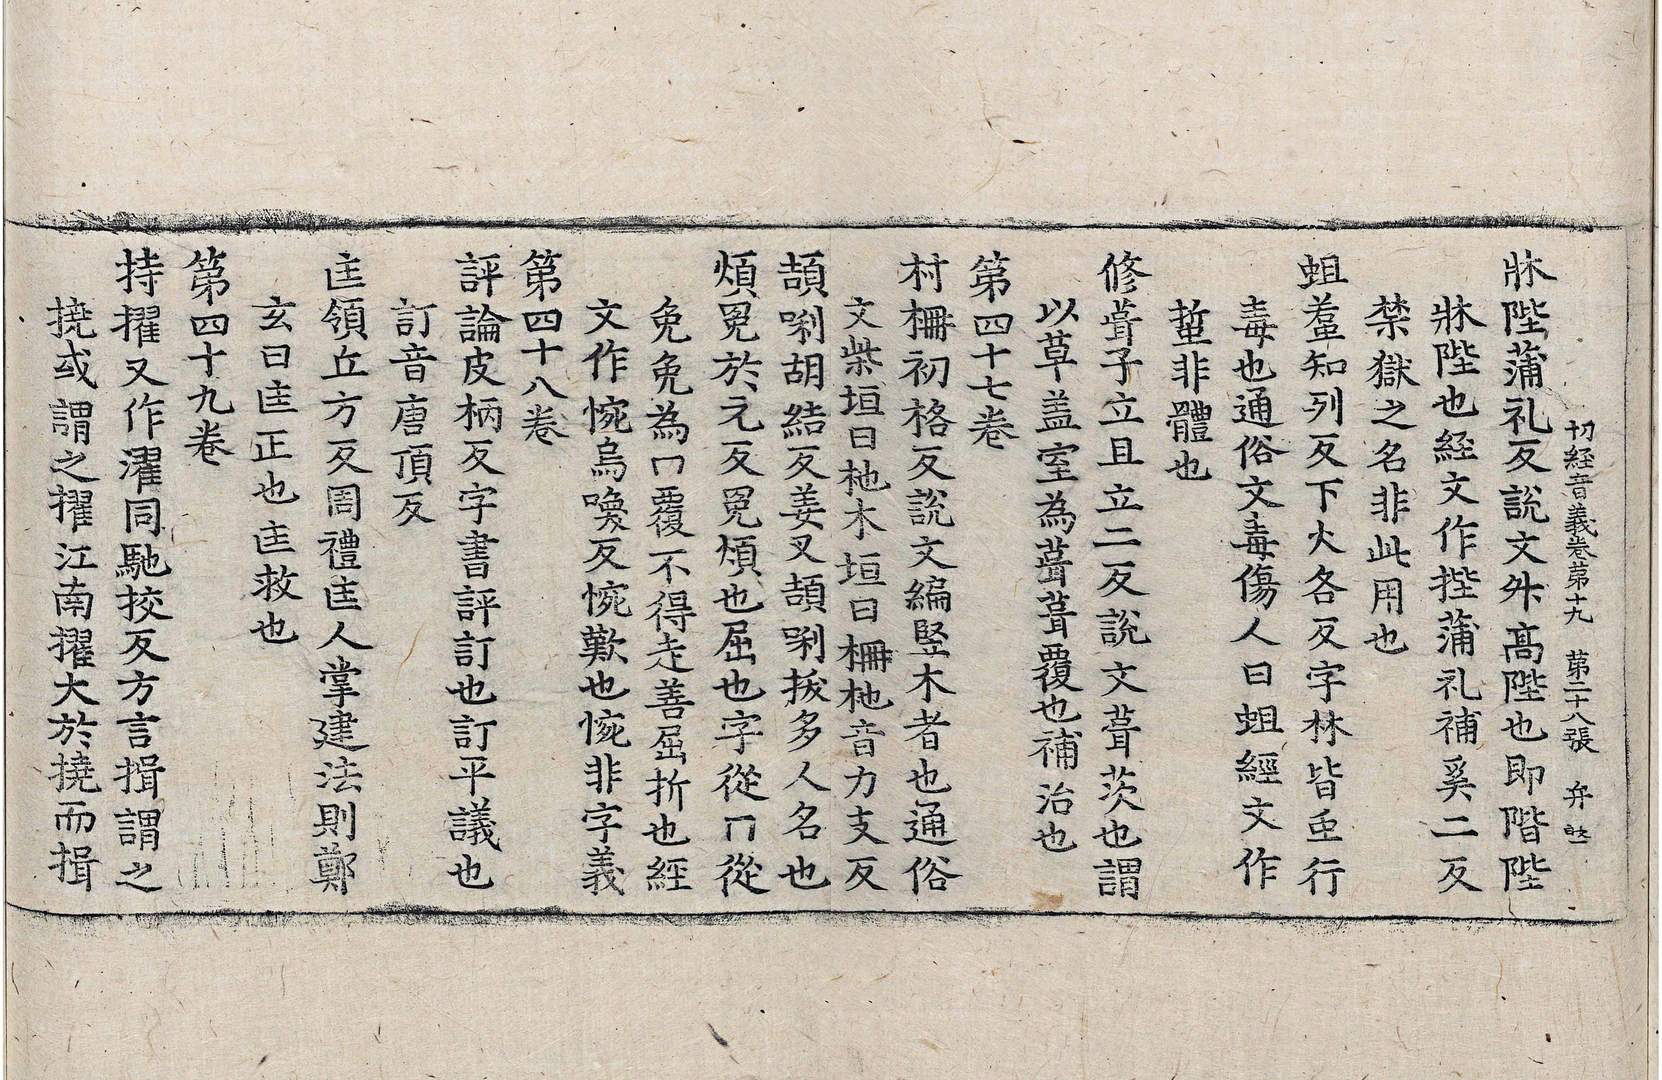 切經音義卷第十九　第二十八張　弁
牀陛蒲礼反説文外髙陛也即階陛
牀陛也経文作㧗蒲礼補奚二反
禁獄之名非此用也
蛆䖧知列反下火各反字林皆䖝行
毒也通俗文毒傷人曰蛆經文作
蜇非體也
修葺子立且立二反説文葺茨也謂
以草盖室為葺葺覆也補治也
第四十七卷
村柵初格反說文編竪木者也通俗
文柴垣曰杝木垣曰柵杝音力支反
頡唎胡結反姜叉頡唎拔多人名也
煩冤於元反冤煩也屈也字從冂從
兔兔為冂覆不得走善屈折也經
文作惋烏喚反惋歎也惋非字義
第四十八卷
評論皮柄反字書評訂也訂平議也
訂音唐頂反
𨒌領丘方反周禮𨒌人掌建法則鄭
玄曰𨒌正也𨒌救也
第四十九卷
持擢又作濯同馳挍反方言揖謂之
撓或謂之擢江南擢大於撓而揖